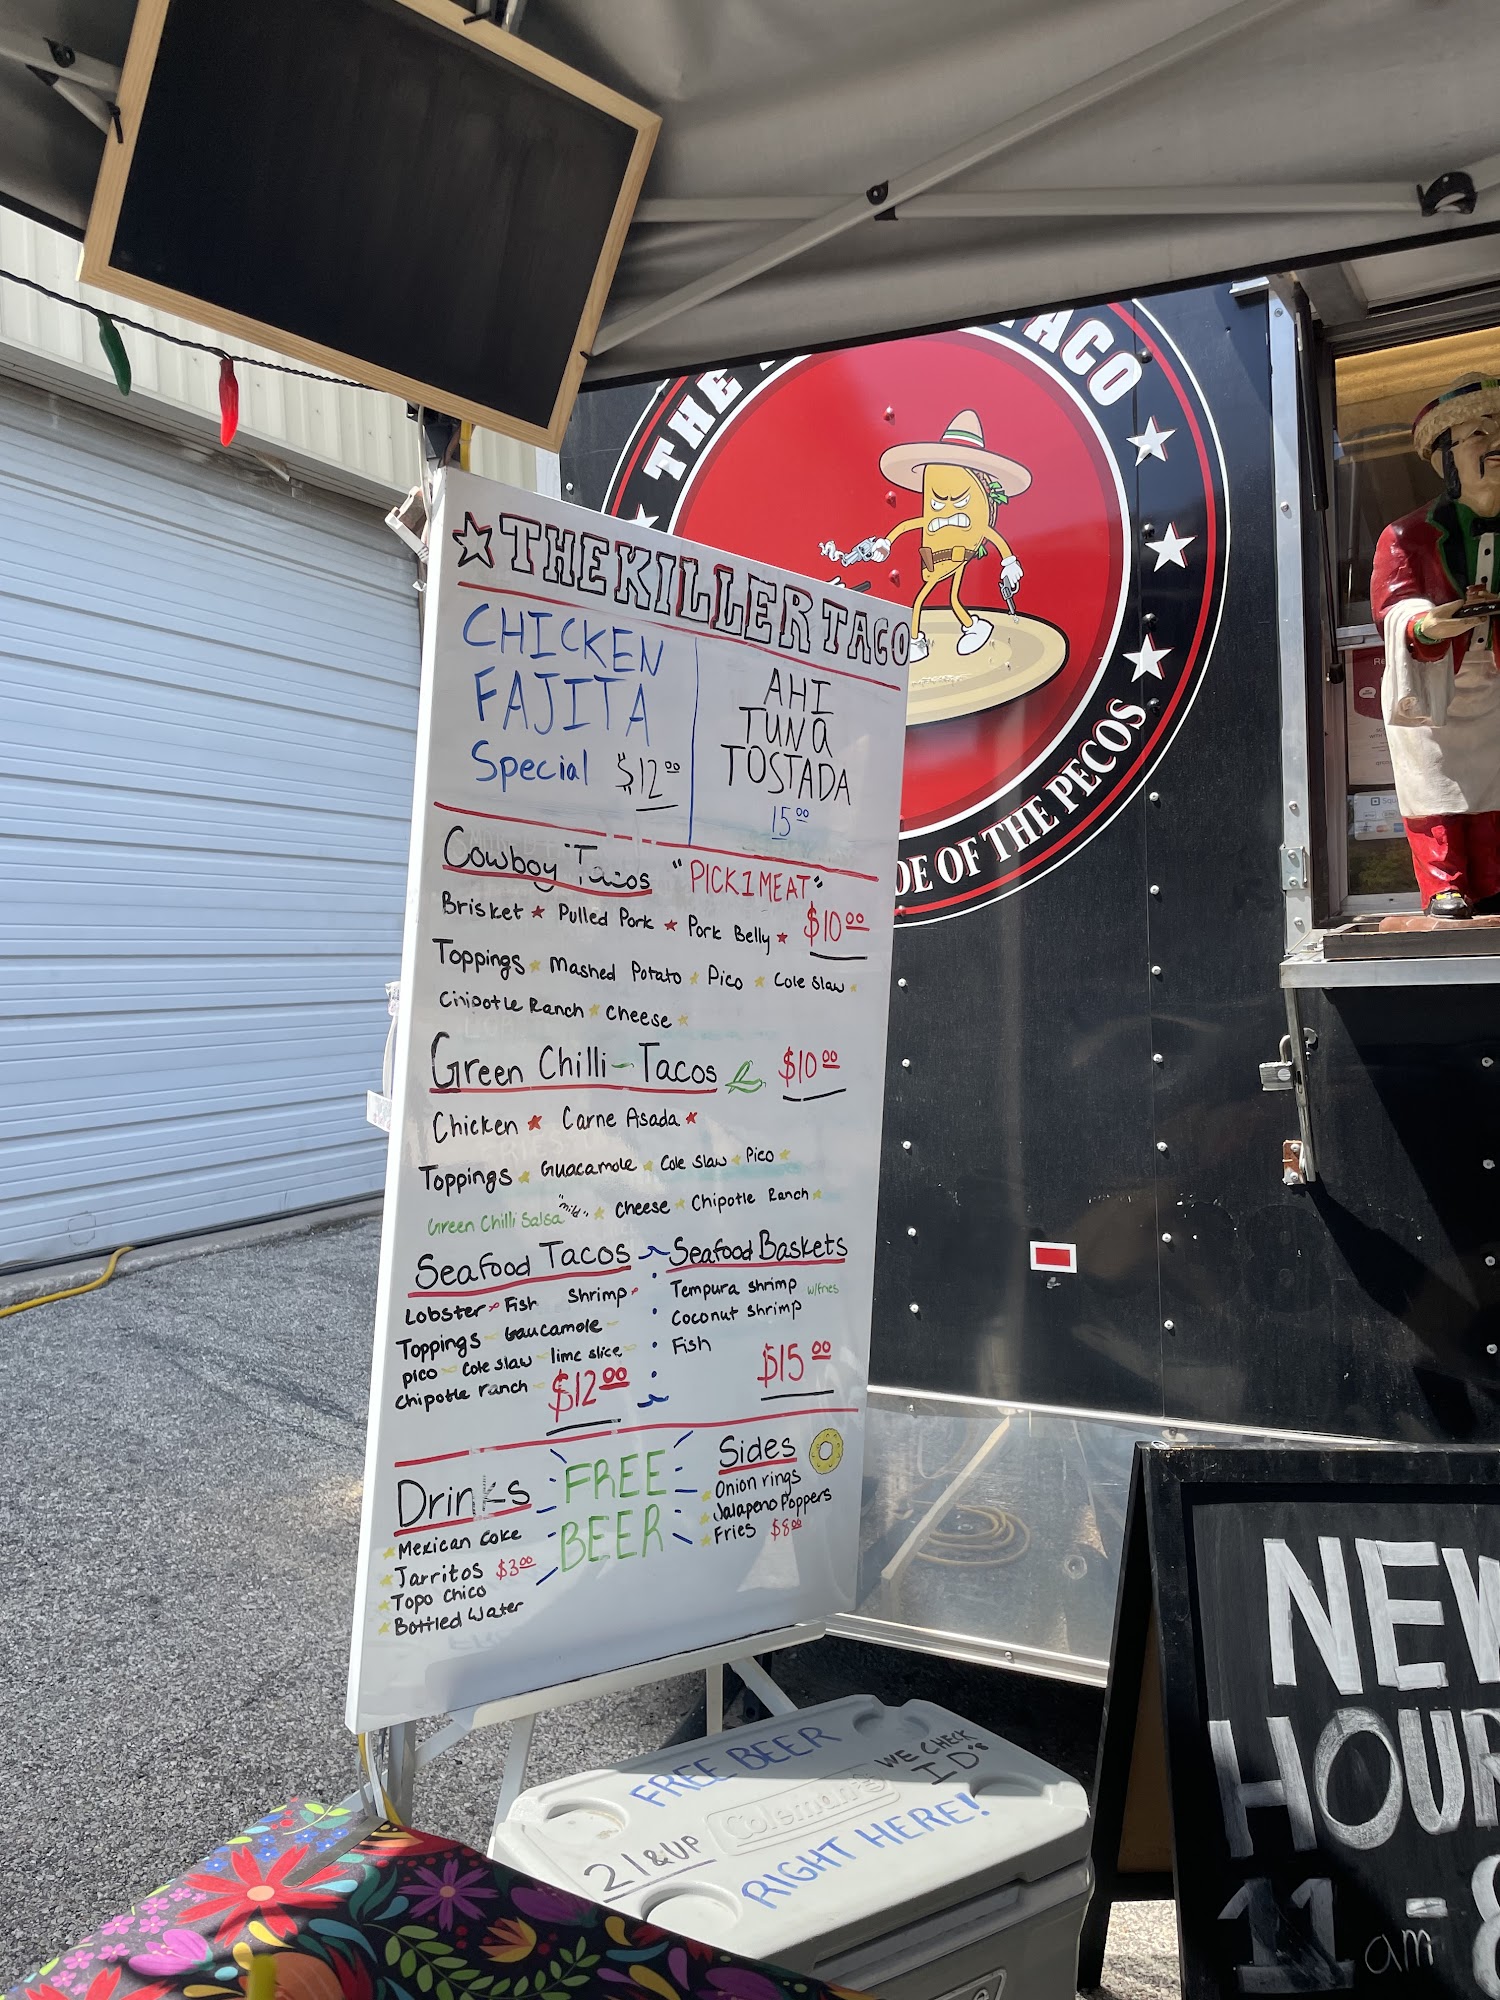 THE TACO
DE OF THE PECOS
THE KILLER TACO
CHICKEN
FAJITA
Special $12⁰⁰
AHI
TUNA
TOSTADA
15⁰⁰
Cowboy Tacos "PICK 1 MEAT"
Brisket ★ Pulled Pork ★ Pork Belly ★ $10⁰⁰
Toppings ★ Mashed Potato ★ Pico ★ Cole Slaw ★
Chipotle Ranch ★ Cheese ★
Green Chilli-Tacos $10⁰⁰
Chicken ★ Carne Asada ★
Toppings ★ Guacamole ★ Cole Slaw ★ Pico ★
Green Chilli Salsa "mild" ★ Cheese ★ Chipotle Ranch ★
Seafood Tacos
Lobster Fish Shrimp
Toppings Gaucamole
pico Cole Slaw lime slice
Chipotle ranch $12⁰⁰
Seafood Baskets
Tempura shrimp w/fries
Coconut shrimp
Fish
$15⁰⁰
Drinks
★ Mexican Coke
★ Jarritos $3⁰⁰
★ Topo Chico
★ Bottled Water
FREE
BEER
Sides
★ Onion rings
★ Jalapeno Poppers
★ Fries $8⁰⁰
FREE BEER
WE CHECK
I.D"s
Coleman
21 & UP
RIGHT HERE!
NEW
HOUR
11am - 8